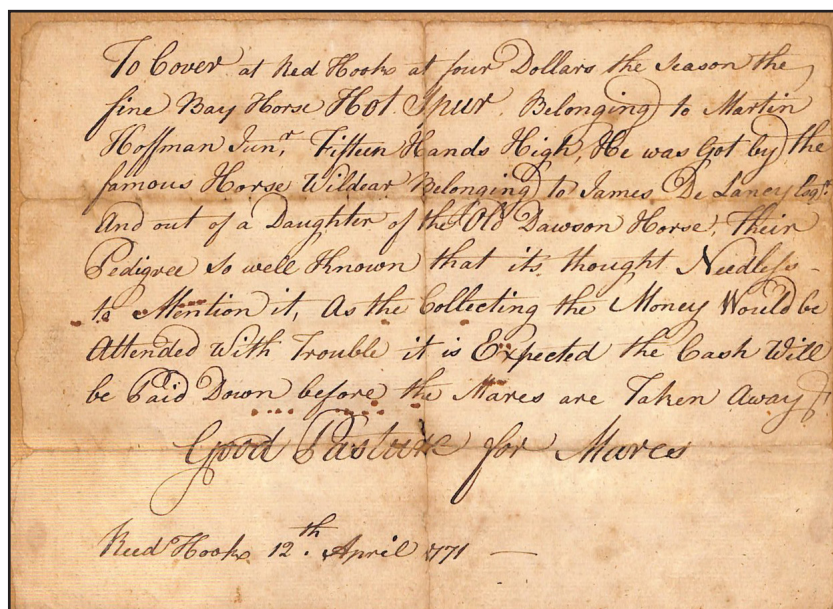 To Cover at Red Hook at four Dollars the Season the
fine Bay Horse Hot Spur. Belonging to Martin
Hoffman Junr. Fifteen Hands High, He was Got by the
famous Horse Wildear Belonging to James De Lancy Esqr.
And out of a Daughter of the Old Dawson Horse, Their
Pedigree So well Known that its, thought Needless
to Mention it, As the Collecting the Money Would be
Attended With Trouble it is Expected the Cash Will
be Paid Down before the Mares are Taken Away
Good Pasture for Mares
Reed Hook 12th. April 1771 —